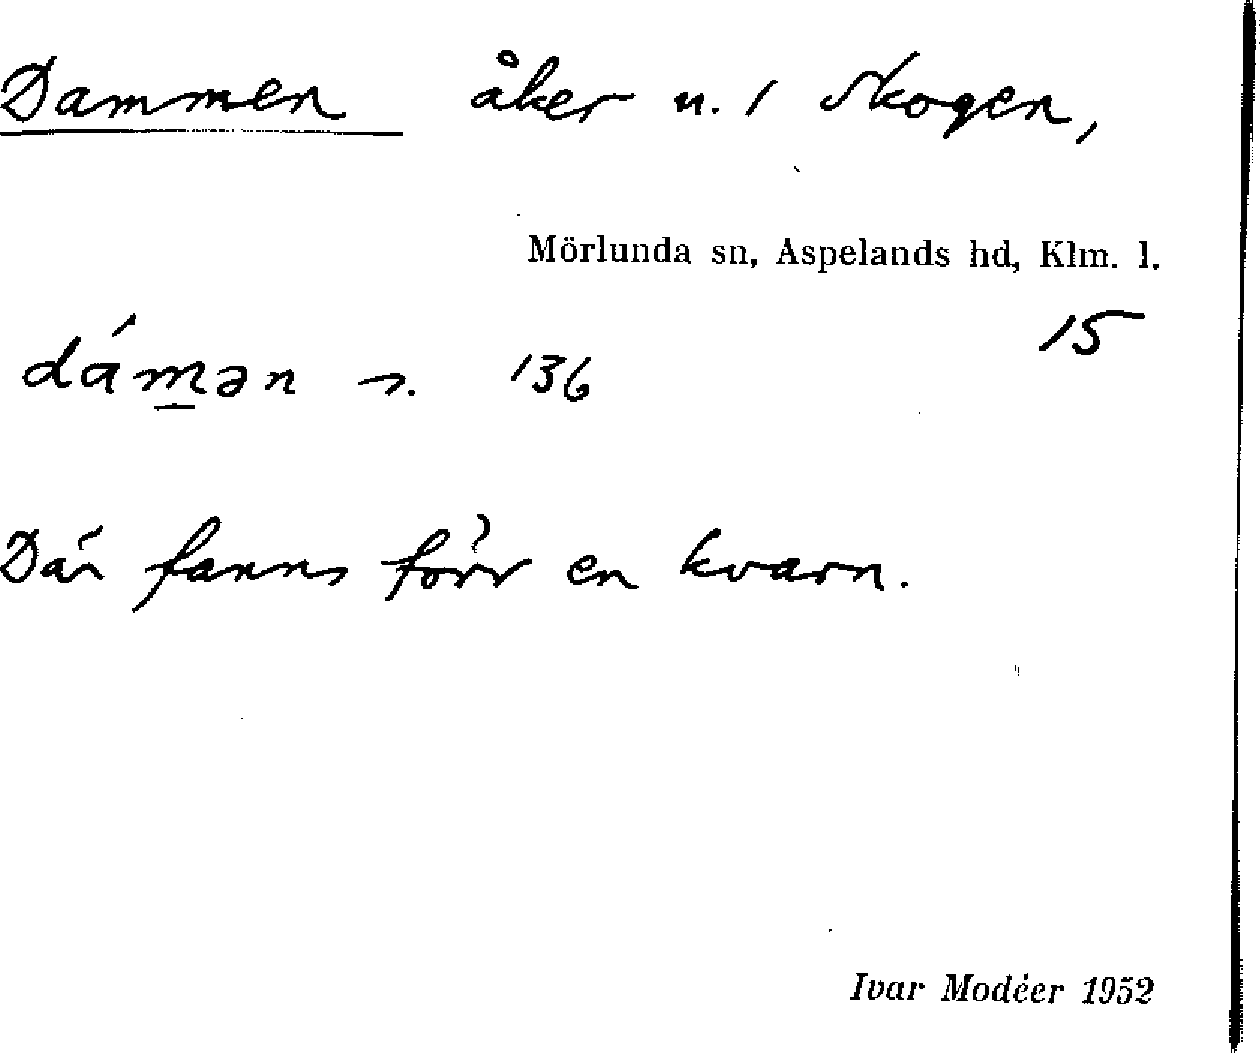 Dammen åker u. / Skogen,
Mörlunda sn, Aspelands hd, Klm. l.
15
dámən 136
Där fanns förr en kvarn.
Ivar Modéer 1952